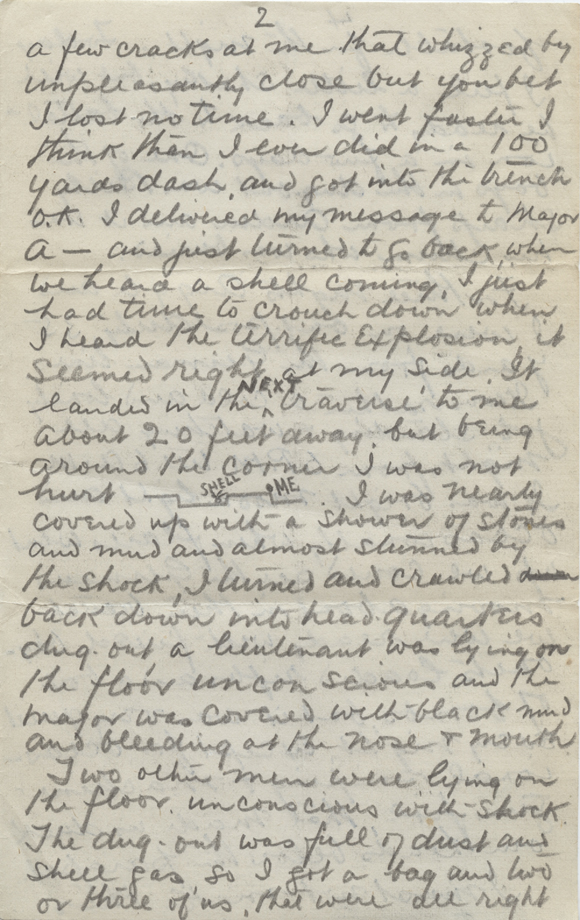 2
a few cracks at me that whizzed by
unpleasantly close but you bet
I lost no time. I went faster I
think than I ever did in a 100
yards dash, and got into the trench
O.K. I delivered my message to Major
A — and just turned to go back, when
we heard a shell coming, I just
had time to crouch down when
I heard the terrific Explosion, it
seemed right at my side. It
landed in the NEXT 'traverse' to me
about 20 feet away, but being
around the corner I was not
hurt SHELL ME. I was nearly
covered up with a shower of stones
and mud and almost stunned by
the shock, I turned and crawled
back down into head quarters
dug-out, a lieutenant was lying on
the floor unconscious and the
major was covered with black mud
and bleeding at the nose & mouth
Two other men were lying on
the floor unconscious with shock
The dug-out was full of dust and
shell gas so I got a bag and two
or three of us, that were all right